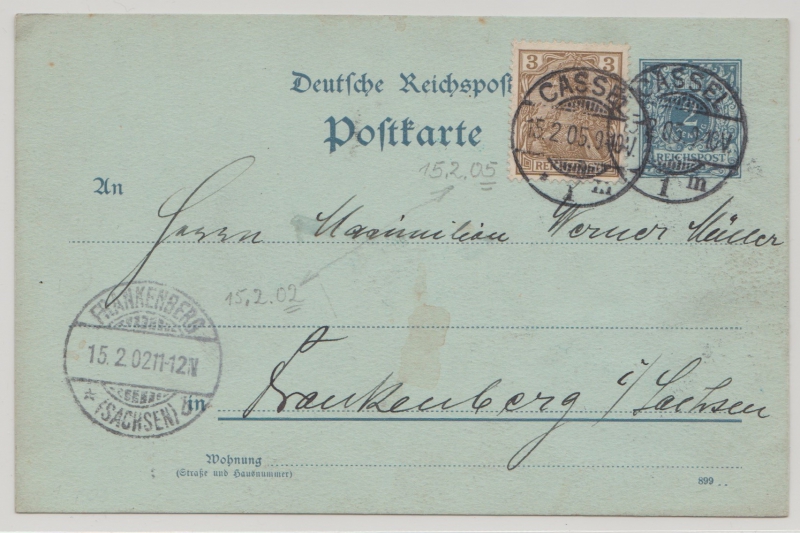 3 3
REICHSPOST
Deutsche Reichspost
Postkarte
CASSEL
15.2.05.9-10V.
1 m
CASSEL
2.05.9-10V.
1 m
2
REICHSPOST
15.2.05
An
Herrn Maximilian Werner Müller
15.2.02
FRANKENBERG
15.2.02 11-12N
* (SACHSEN)
in Frankenberg i/Sachsen
Wohnung
(Straße und Hausnummer)
899